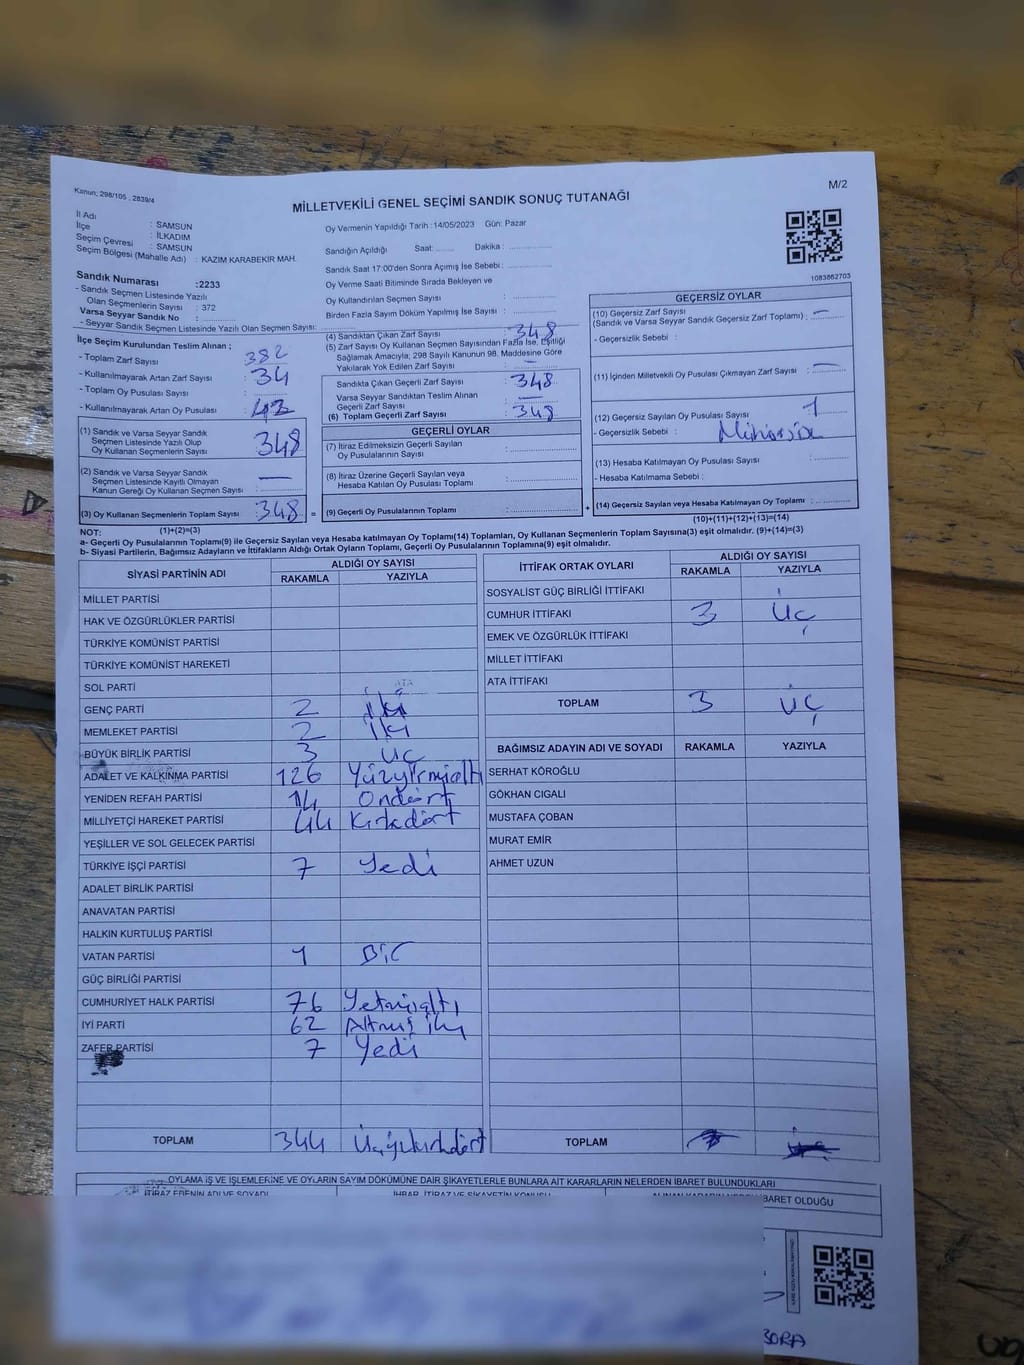 Kanun; 298/105 , 2839/4
M/2
MİLLETVEKİLİ GENEL SEÇİMİ SANDIK SONUÇ TUTANAĞI
İl Adı : SAMSUN
İlçe : İLKADIM
Seçim Çevresi : SAMSUN
Seçim Bölgesi (Mahalle Adı) : KAZIM KARABEKİR MAH.
Sandık Numarası :2233
- Sandık Seçmen Listesinde Yazılı
Olan Seçmenlerin Sayısı : 372
Varsa Seyyar Sandık No :
- Seyyar Sandık Seçmen Listesinde Yazılı Olan Seçmen Sayısı:
Oy Vermenin Yapıldığı Tarih :14/05/2023 Gün: Pazar
Sandığın Açıldığı Saat: Dakika :
Sandık Saat 17:00'den Sonra Açılmış İse Sebebi :
Oy Verme Saati Bitiminde Sırada Bekleyen ve
Oy Kullandırılan Seçmen Sayısı :
Birden Fazla Sayım Döküm Yapılmış İse Sayısı :
1083862703
İlçe Seçim Kurulundan Teslim Alınan ;
- Toplam Zarf Sayısı : 382
- Kullanılmayarak Artan Zarf Sayısı : 34
- Toplam Oy Pusulası Sayısı :
- Kullanılmayarak Artan Oy Pusulası :
(1) Sandık ve Varsa Seyyar Sandık
Seçmen Listesinde Yazılı Olup
Oy Kullanan Seçmenlerin Sayısı : 348
(2) Sandık ve Varsa Seyyar Sandık
Seçmen Listesinde Kayıtlı Olmayan
Kanun Gereği Oy Kullanan Seçmen Sayısı : —
(3) Oy Kullanan Seçmenlerin Toplam Sayısı : 348 =
(1)+(2)=(3)
(4) Sandıktan Çıkan Zarf Sayısı : 348
(5) Zarf Sayısı Oy Kullanan Seçmen Sayısından Fazla İse, Eşitliği
Sağlamak Amacıyla; 298 Sayılı Kanunun 98. Maddesine Göre
Yakılarak Yok Edilen Zarf Sayısı : —
Sandıkta Çıkan Geçerli Zarf Sayısı : 348
Varsa Seyyar Sandıktan Teslim Alınan
Geçerli Zarf Sayısı : —
(6) Toplam Geçerli Zarf Sayısı : 348
GEÇERLİ OYLAR
(7) İtiraz Edilmeksizin Geçerli Sayılan
Oy Pusulasının Sayısı :
(8) İtiraz Üzerine Geçerli Sayılan veya
Hesaba Katılan Oy Pusulası Toplamı :
(9) Geçerli Oy Pusulalarının Toplamı : +
GEÇERSİZ OYLAR
(10) Geçersiz Zarf Sayısı
(Sandık ve Varsa Seyyar Sandık Geçersiz Zarf Toplamı) : —
- Geçersizlik Sebebi :
(11) İçinden Milletvekili Oy Pusulası Çıkmayan Zarf Sayısı : —
(12) Geçersiz Sayılan Oy Pusulası Sayısı : 1
- Geçersizlik Sebebi :
(13) Hesaba Katılmayan Oy Pusulası Sayısı :
- Hesaba Katılmama Sebebi :
(14) Geçersiz Sayılan veya Hesaba Katılmayan Oy Toplamı :
(10)+(11)+(12)+(13)=(14)
NOT:
a- Geçerli Oy Pusulalarının Toplamı(9) ile Geçersiz Sayılan veya Hesaba Katılmayan Oy Toplamı(14) Toplamları, Oy Kullanan Seçmenlerin Toplam Sayısına(3) eşit olmalıdır. (9)+(14)=(3)
b- Siyasi Partilerin, Bağımsız Adayların ve İttifakların Aldığı Ortak Oyların Toplamı, Geçerli Oy Pusulalarının Toplamına(9) eşit olmalıdır.
SİYASİ PARTİNİN ADI ALDIĞI OY SAYISI
RAKAMLA YAZIYLA
MİLLET PARTİSİ
HAK VE ÖZGÜRLÜKLER PARTİSİ
TÜRKİYE KOMÜNİST PARTİSİ
TÜRKİYE KOMÜNİST HAREKETİ
SOL PARTİ
GENÇ PARTİ 2 iki
MEMLEKET PARTİSİ 2 iki
BÜYÜK BİRLİK PARTİSİ 3 üç
ADALET VE KALKINMA PARTİSİ 126 Yüzyirmialtı
YENİDEN REFAH PARTİSİ 14 Ondört
MİLLİYETÇİ HAREKET PARTİSİ 44 Kırkdört
YEŞİLLER VE SOL GELECEK PARTİSİ
TÜRKİYE İŞÇİ PARTİSİ 7 Yedi
ADALET BİRLİK PARTİSİ
ANAVATAN PARTİSİ
HALKIN KURTULUŞ PARTİSİ
VATAN PARTİSİ 1 Bir
GÜÇ BİRLİĞİ PARTİSİ
CUMHURİYET HALK PARTİSİ 76 Yetmişaltı
İYİ PARTİ 62 Altmış iki
ZAFER PARTİSİ 7 Yedi
TOPLAM 344 Üçyüzkırkdört
İTTİFAK ORTAK OYLARI ALDIĞI OY SAYISI
RAKAMLA YAZIYLA
SOSYALİST GÜÇ BİRLİĞİ İTTİFAKI
CUMHUR İTTİFAKI 3 üç
EMEK VE ÖZGÜRLÜK İTTİFAKI
MİLLET İTTİFAKI
ATA İTTİFAKI
TOPLAM 3 üç
BAĞIMSIZ ADAYIN ADI VE SOYADI RAKAMLA YAZIYLA
SERHAT KÖROĞLU
GÖKHAN CIGALI
MUSTAFA ÇOBAN
MURAT EMİR
AHMET UZUN
TOPLAM
OYLAMA İŞ VE İŞLEMLERİNE VE OYLARIN SAYIM DÖKÜMÜNE DAİR ŞİKAYETLERLE BUNLARA AİT KARARLARIN NELERDEN İBARET BULUNDUKLARI
İTİRAZ EDENİN ADI VE SOYADI
İHBAR, İTİRAZ VE ŞİKAYETİN KONUSU
İBARET OLDUĞU
BORA